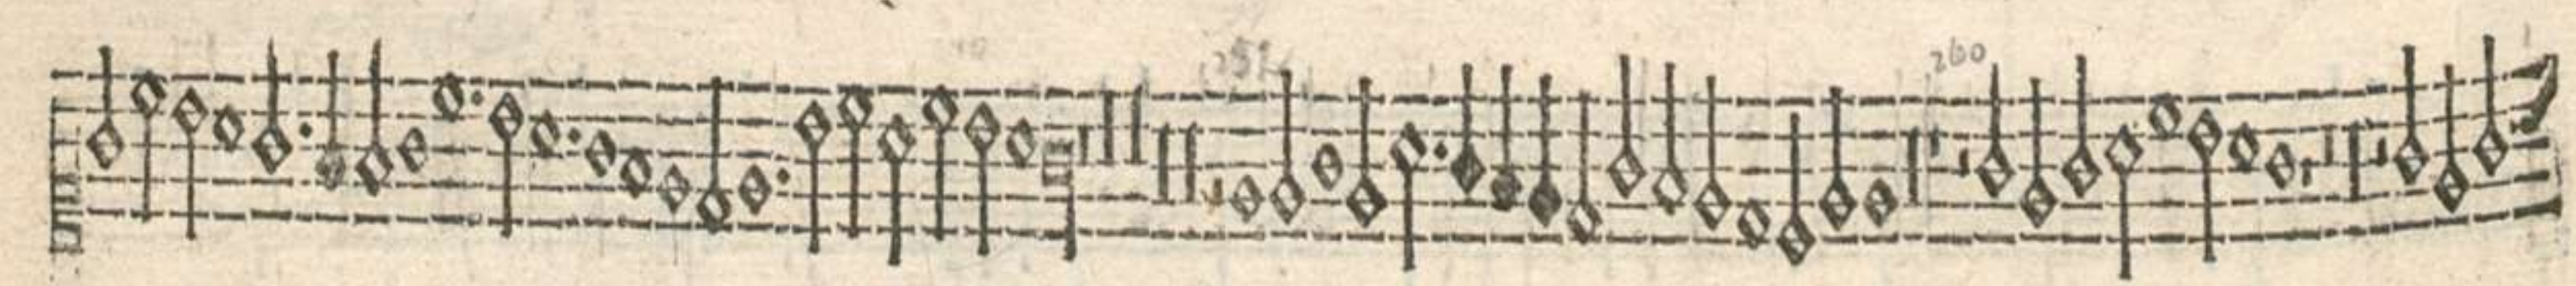 252 260